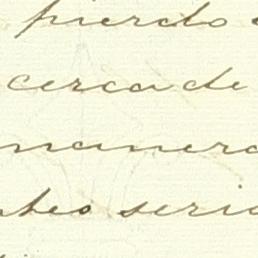 pierdo
cerca de
manera
serio